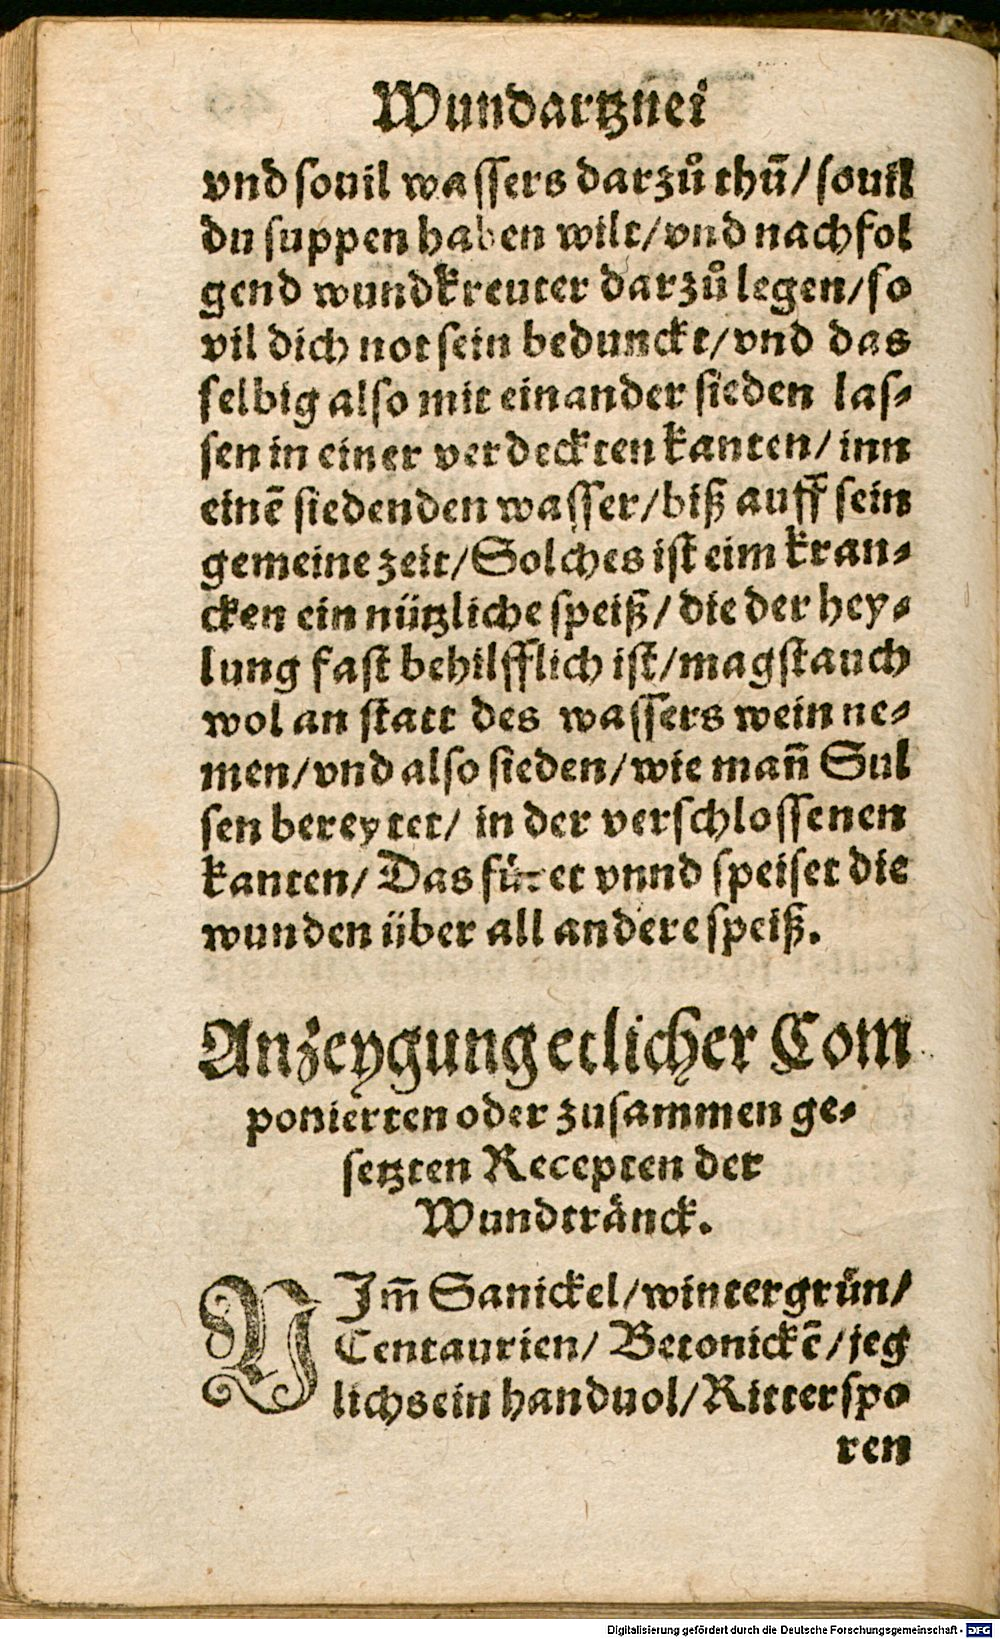 Wundartznei
vnd souil wassers darzů thū/ souil
du suppen haben wilt/ vnd nachfol
gend wundkreuter darzů legen/ so
vil dich not sein bedunckt/ vnd das
selbig also mit einander sieden las⸗
sen in einer verdeckten kanten/ inn
einē siedenden wasser/ biß auff sein
gemeine zeit/ Solches ist eim kran⸗
cken ein nützliche speiß/ die der hey⸗
lung fast behilfflich ist/ magst auch
wol an statt des wassers wein ne⸗
men/ vnd also sieden/ wie mañ Sul
sen bereytet/ in der verschlossenen
kanten/ Das füret vnnd speiset die
wunden über all andere speiß.
Anzeygung etlicher Com
ponierten oder zusammen ge⸗
setzten Recepten der
Wundtränck.
NIm̄ Sanickel/ wintergrün/
Centaurien/ Betonickē/ jeg
lichs ein handuol/ Ritterspo
ren
Digitalisierung gefördert durch die Deutsche Forschungsgemeinschaft - DFG